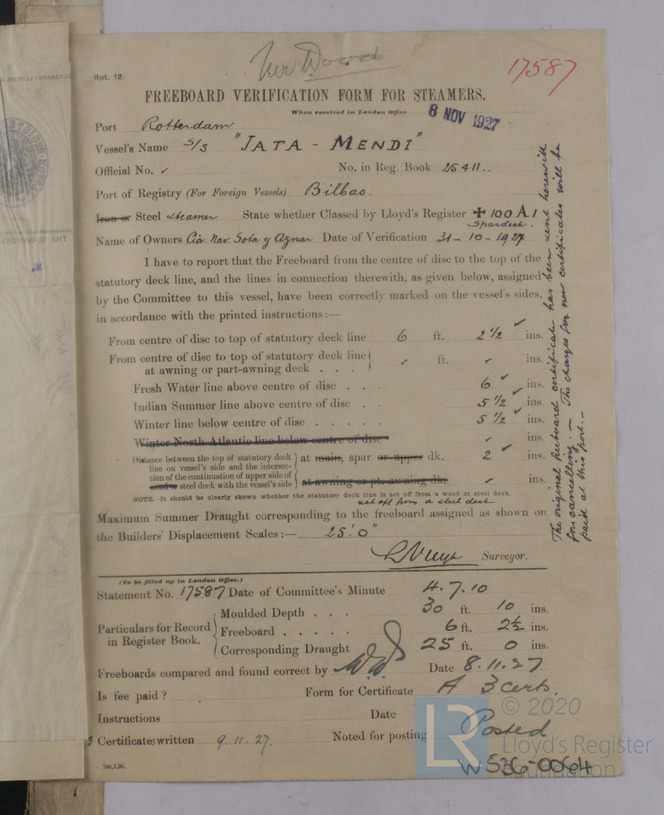 Rpt. 12.
Mr Wood
17587
FREEBOARD VERIFICATION FORM FOR STEAMERS.
When received in London Office
8 NOV 1927
Port Rotterdam
Vessel's Name S/S "JATA - MENDI"
Official No. ✓ No. in Reg. Book 25411..
Port of Registry (For Foreign Vessels) Bilbao.
Iron or Steel steamer State whether Classed by Lloyd's Register ✠ 100 A.1
Spardeck.
Name of Owners Cia. Nav. Sota y Aznar Date of Verification 31-10-1927
I have to report that the Freeboard from the centre of disc to the top of the
statutory deck line, and the lines in connection therewith, as given below, assigned
by the Committee to this vessel, have been correctly marked on the vessel's sides,
in accordance with the printed instructions:—
From centre of disc to top of statutory deck line 6 ft. 2 1/2 ✓ ins.
From centre of disc to top of statutory deck line
at awning or part-awning deck . . . ✓ ft. ✓ ins.
Fresh Water line above centre of disc . . . 6 ✓ ins.
Indian Summer line above centre of disc . . 5 1/2 ✓ ins.
Winter line below centre of disc . . . . . 5 1/2 ✓ ins.
Winter North Atlantic line below centre of disc ✓ ins.
Distance between the top of statutory deck
line on vessel's side and the intersec-
tion of the continuation of upper side of
wood or steel deck with the vessel's side
at main, spar or upper dk. 2 ✓ ins.
at awning or pt. awning dk. ✓ ins.
NOTE. It should be clearly shown whether the statutory deck line is set off from a wood or steel deck.
set off from a steel deck
Maximum Summer Draught corresponding to the freeboard assigned as shown on
the Builders' Displacement Scales:— 25' 0"
Surveyor.
The original freeboard certificate has been sent herewith
for cancelling. — The charges for new certificates will be
paid at this port. —
(To be filled up in London Office.)
Statement No. 17587 Date of Committee's Minute 4.7.10
Particulars for Record
in Register Book.
Moulded Depth . . . 30 ft. 10 ins.
Freeboard . . . . . 6 ft. 2½ ins.
Corresponding Draught 25 ft. 0 ins.
Freeboards compared and found correct by Date 8.11.27
Is fee paid? Form for Certificate A 3 certs.
Instructions Date
3 Certificates written 9.11.27. Noted for posting Posted
2m,1,26.
W536-0064
© 2020
LR
Lloyd's Register
Foundation